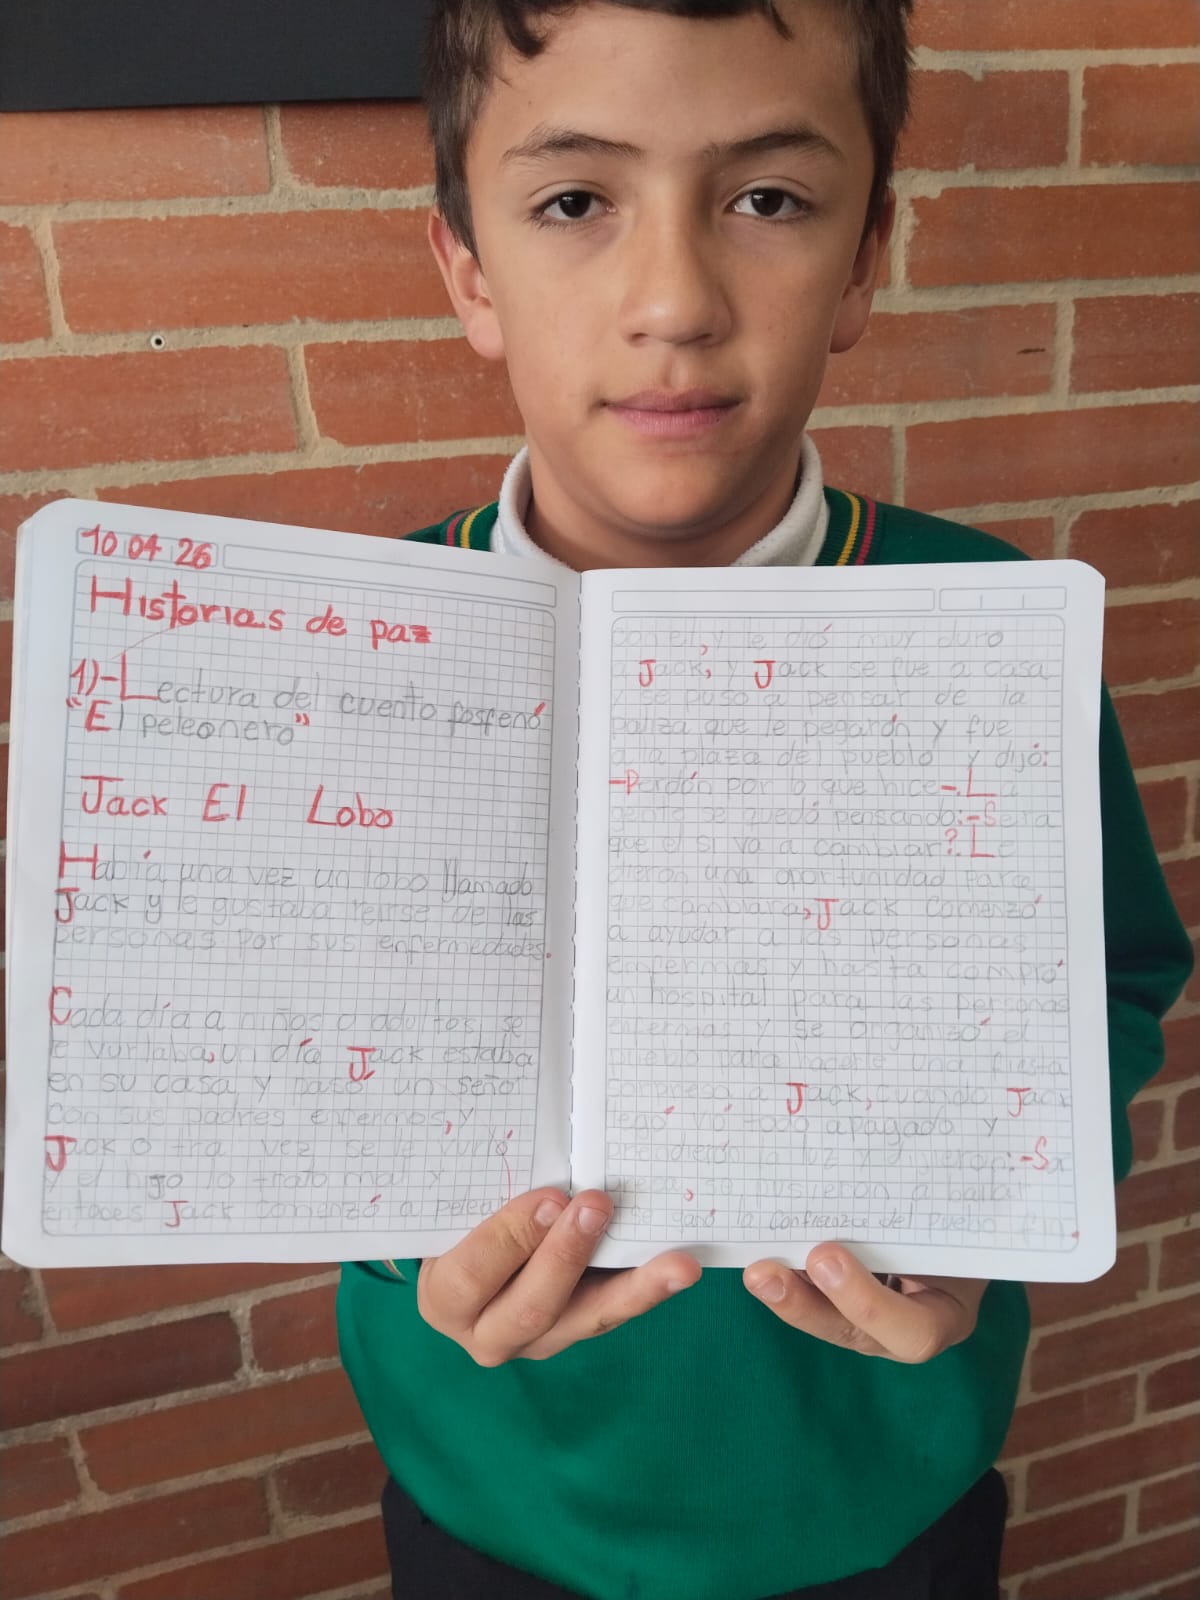 10 04 26
Historias de paz
1)-Lectura del cuento
"El peleonero"
Jack El Lobo
Había una vez un lobo llamado
Jack y le gustaba reirse de las
personas por sus enfermedades.
Cada día a niños o adultos se
le vurlaba, un día Jack estaba
en su casa y pasó un señor
con sus padres enfermos, y
Jack o tra vez se le vurló
y el hijo lo trató mal y
entoces Jack comenzó a pelear
con el, y le dió muy duro
a Jack, y Jack se fue a casa
y se puso a pensar de la
paliza que le pegarón y fue
a la plaza del pueblo y dijó:
-Perdón por lo que hice-. La
gente se quedó pensando:-Sera
que el si va a cambiar?. Le
dieron una oportunidad
que cambiara, Jack comenzó
a ayudar a las personas
enfermas y hasta compró
un hospital para las personas
enfermas y se organizó el
pueblo para hacerle una fiesta
sorpresa a Jack, cuando Jack
llegó vió todo apagado y
prendierón la luz y dijeron:-Sor
presa, se pusieron a bailar
y se ganó la confianza del pueblo fin.